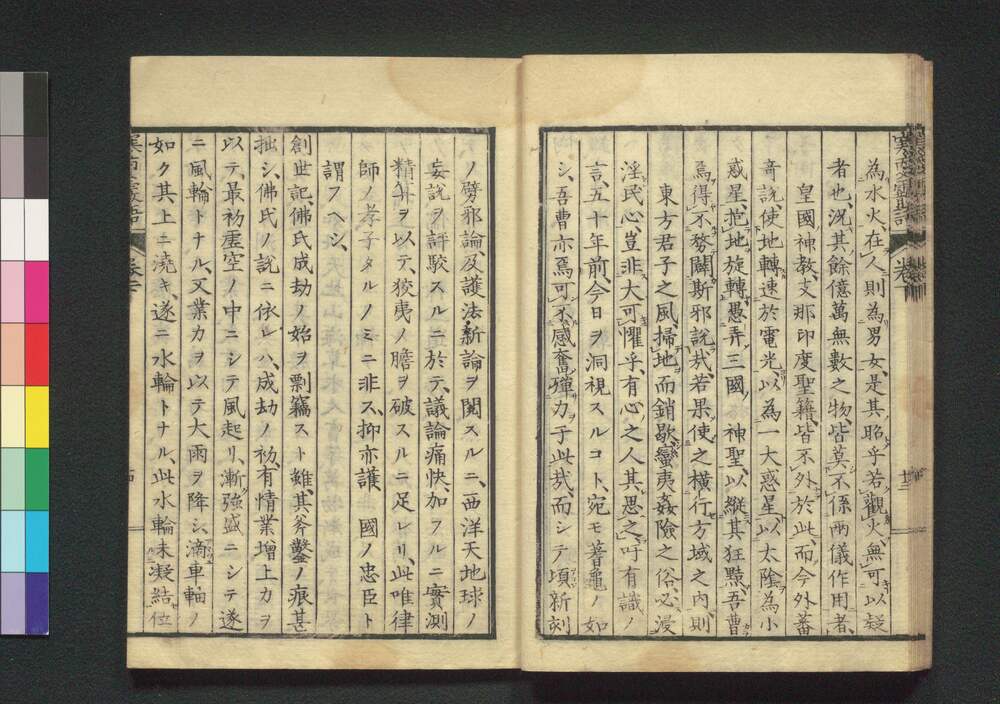 為水火、在人則為男女、是其昭乎若觀火、無可以疑
者也、況其餘億萬無數之物、皆莫不係兩儀作用者、
皇國神教、支那印度聖籍、皆不外於此、而今外蕃
奇説、使地轉速於電光、以為一大惑星、以太陰為小
惑星、抱地旋轉、愚弄三國神聖、以縱其狂黠、吾曹
焉得不務闢斯邪説哉、若果使之橫行方域之內、則
東方君子之風、掃地而銷歇、蠻夷姦險之俗、必浸
淫民心、豈非大可懼乎、有心之人其思之、吁有識ノ
言、五十年前、今日ヲ洞視スルコト、宛モ蓍龜ノ如
シ、吾曹亦焉可不感奮殫力于此哉、而シテ頃新刻
ノ劈邪論、及護法新論ヲ閲スルニ、西洋天地球ノ
妄説ヲ評駁スルニ於テ、議論痛快、加フルニ實測
精算ヲ以テ、狡夷ノ膽ヲ破スルニ足レリ、此唯律
師ノ孝子タルノミニ非ス、抑亦護國ノ忠臣ト
謂フヘシ、
創世記、佛氏成劫ノ始ヲ剽竊スト雖、其斧鑿ノ痕甚
拙シ、佛氏ノ説ニ依レハ、成劫ノ初、有情業增上カヲ
以テ、最初虛空ノ中ニシテ風起リ、漸強盛ニシテ遂
ニ風輪トナル、又業力ヲ以テ大雨ヲ降シ、滴車軸ノ
如ク其上ニ澆キ、遂ニ水輪トナル、此水輪未凝結位